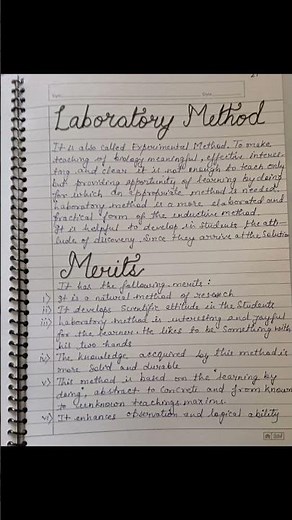 Laboratory Method
It is also called Experimental Method. To make
teaching of biology meaningful, effective interes-
ting and clear it is not enough to teach only
but providing opportunity of learning by doing
for which an appropriate method is needed.
Laboratory method is a more elaborated and
practical form of the inductive method.
It is helpful to develop in students the atti-
tude of discovery since they arrive at the solution
Merits
It has the following merits:
i) It is a natural method of research
ii) It develops scientific attitude in the students
iii) Laboratory method is interesting and joyful
for the learner. He likes to be something with
his two hands
iv) The knowledge acquired by this method is
more solid and durable
v) This method is based on the "learning by
doing, abstract to concrete and from known
to unknown teachings maxims.
vi) It enhances observation and logical ability